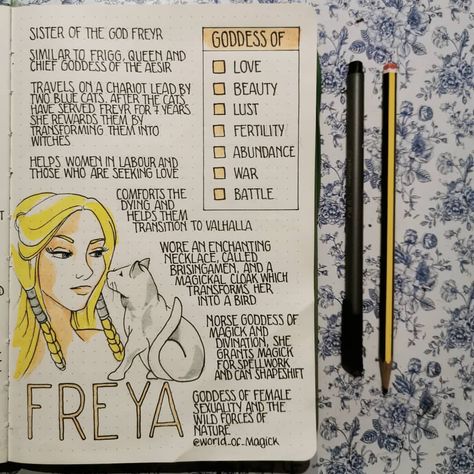 SISTER OF THE GOD FREYR
SIMILAR TO FRIGG, QUEEN AND
CHIEF GODDESS OF THE AESIR
TRAVELS ON A CHARIOT LEAD BY
TWO BLUE CATS. AFTER THE CATS
HAVE SERVED FREYR FOR 7 YEARS
SHE REWARDS THEM BY
TRANSFORMING THEM INTO
WITCHES
HELPS WOMEN IN LABOUR AND
THOSE WHO ARE SEEKING LOVE
COMFORTS THE
DYING AND
HELPS THEM
TRANSITION TO VALHALLA
GODDESS OF
LOVE
BEAUTY
LUST
FERTILITY
ABUNDANCE
WAR
BATTLE
WORE AN ENCHANTING
NECKLACE, CALLED
BRISINGAMEN, AND A
MAGICKAL CLOAK WHICH
TRANSFORMS HER
INTO A BIRD
NORSE GODDESS OF
MAGICK AND
DIVINATION, SHE
GRANTS MAGICK
FOR SPELLWORK
AND CAN SHAPESHIFT
GODDESS OF FEMALE
SEXUALITY AND THE
WILD FORCES OF
NATURE
@WORLD_OF_MAGICK
FREYA